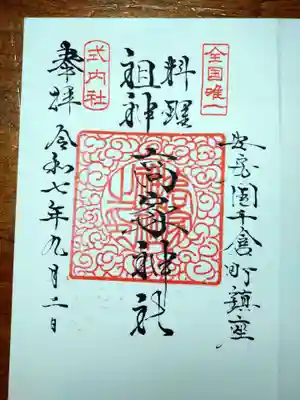 安房国千倉町鎮座
全国唯一
料理
祖神
高家神社
式内社
奉拝
令和七年九月二日